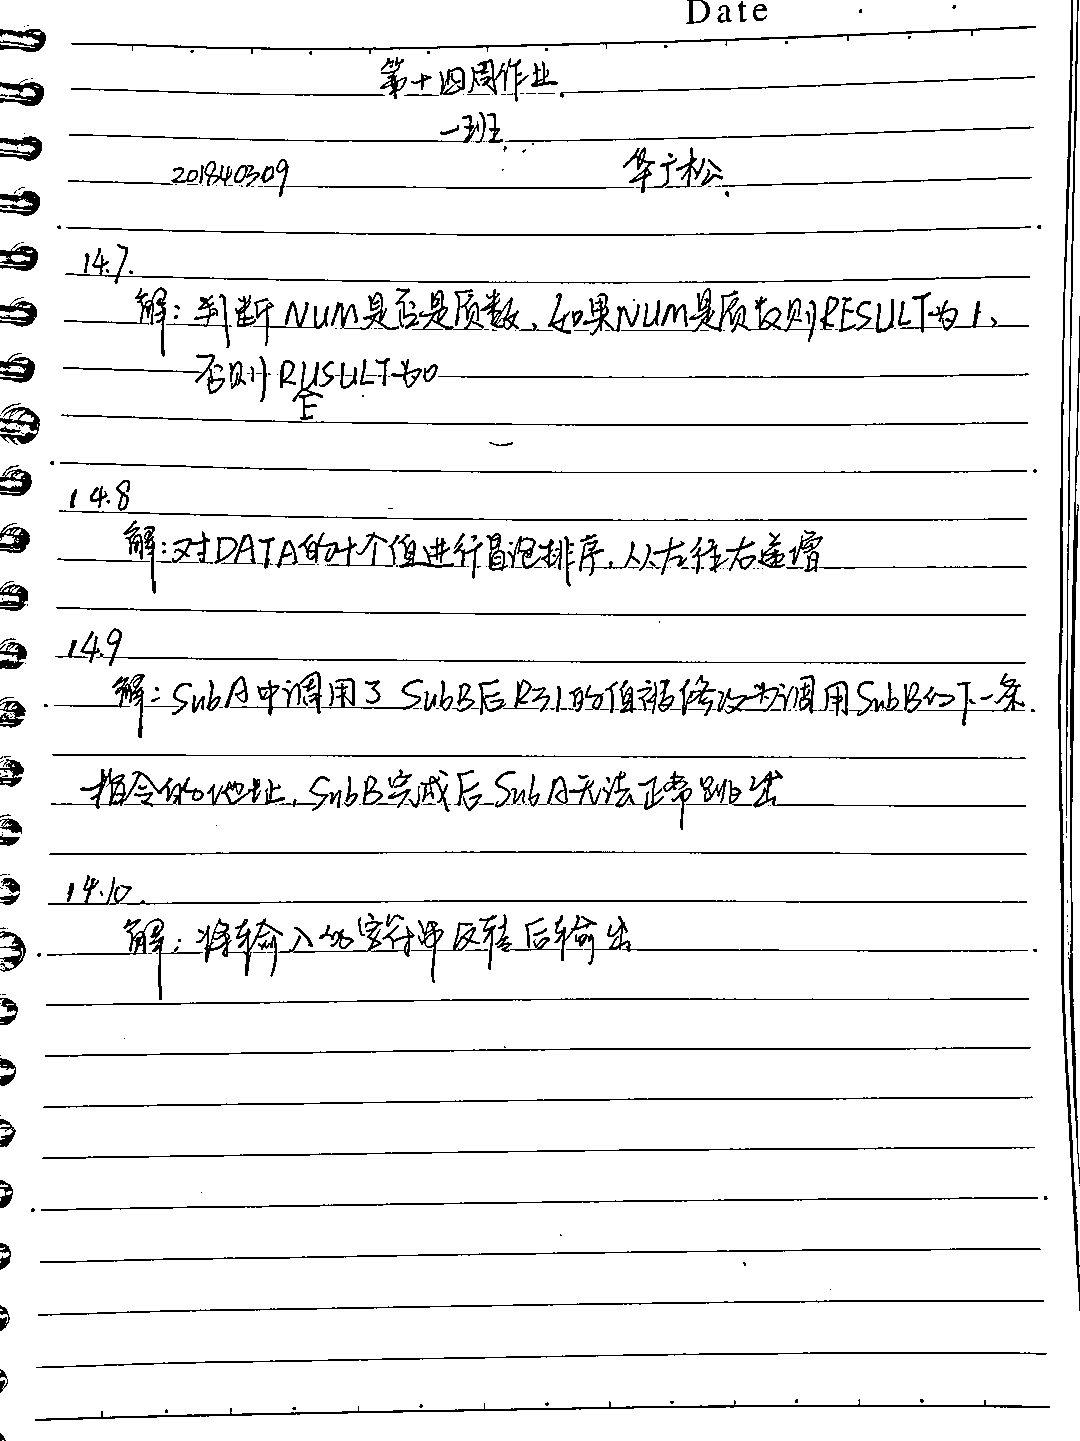 Date
第十四周作业
一班
201840309 华广松
14.7.
解：判断NUM是否是质数，如果NUM是质数则RESULT为1、
否则RUSULT为0
E
14.8
解：对DATA的个值进行冒泡排序，从左往右递增
14.9
解：SubA中调用了SubB后R31的值被修改为调用SubB的下一条
指令的地址，SubB完成后SubA无法正常跳出
14.10.
解：将输入的字符串反转后输出